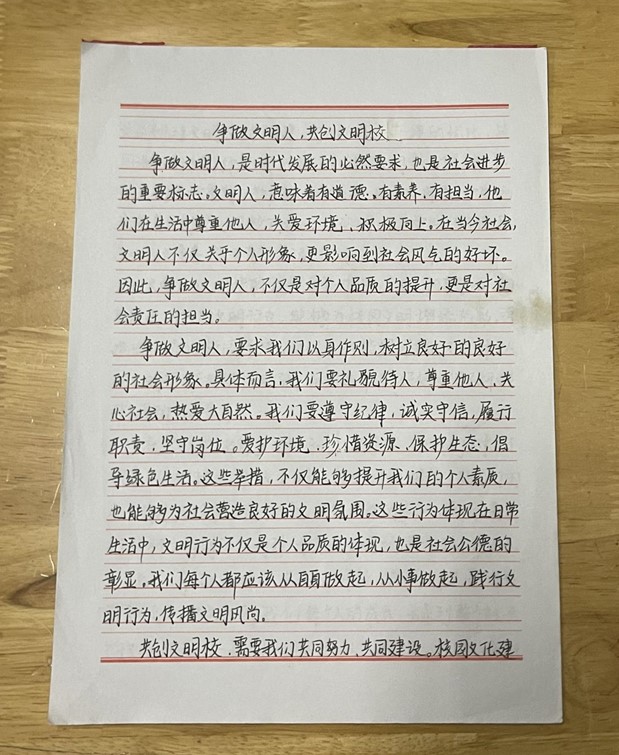 争做文明人,共创文明校
争做文明人,是时代发展的必然要求,也是社会进步
的重要标志。文明人,意味着有道德、有素养、有担当,他
们在生活中尊重他人、关爱环境、积极向上。在当今社会,
文明人不仅关乎个人形象,更影响到社会风气的好坏。
因此,争做文明人,不仅是对个人品质的提升,更是对社
会责任的担当。
争做文明人,要求我们以身作则,树立良好的良好
的社会形象。具体而言,我们要礼貌待人,尊重他人、关
心社会,热爱大自然。我们要遵守纪律,诚实守信,履行
职责、坚守岗位。爱护环境、珍惜资源、保护生态,倡
导绿色生活。这些举措,不仅能够提升我们的个人素质,
也能够为社会营造良好的文明氛围。这些行为体现在日常
生活中,文明行为不仅是个人品质的体现,也是社会公德的
彰显。我们每个人都应该从自身做起,从小事做起,践行文
明行为,传播文明风尚。
共创文明校、需要我们共同努力、共同建设。校园文化建